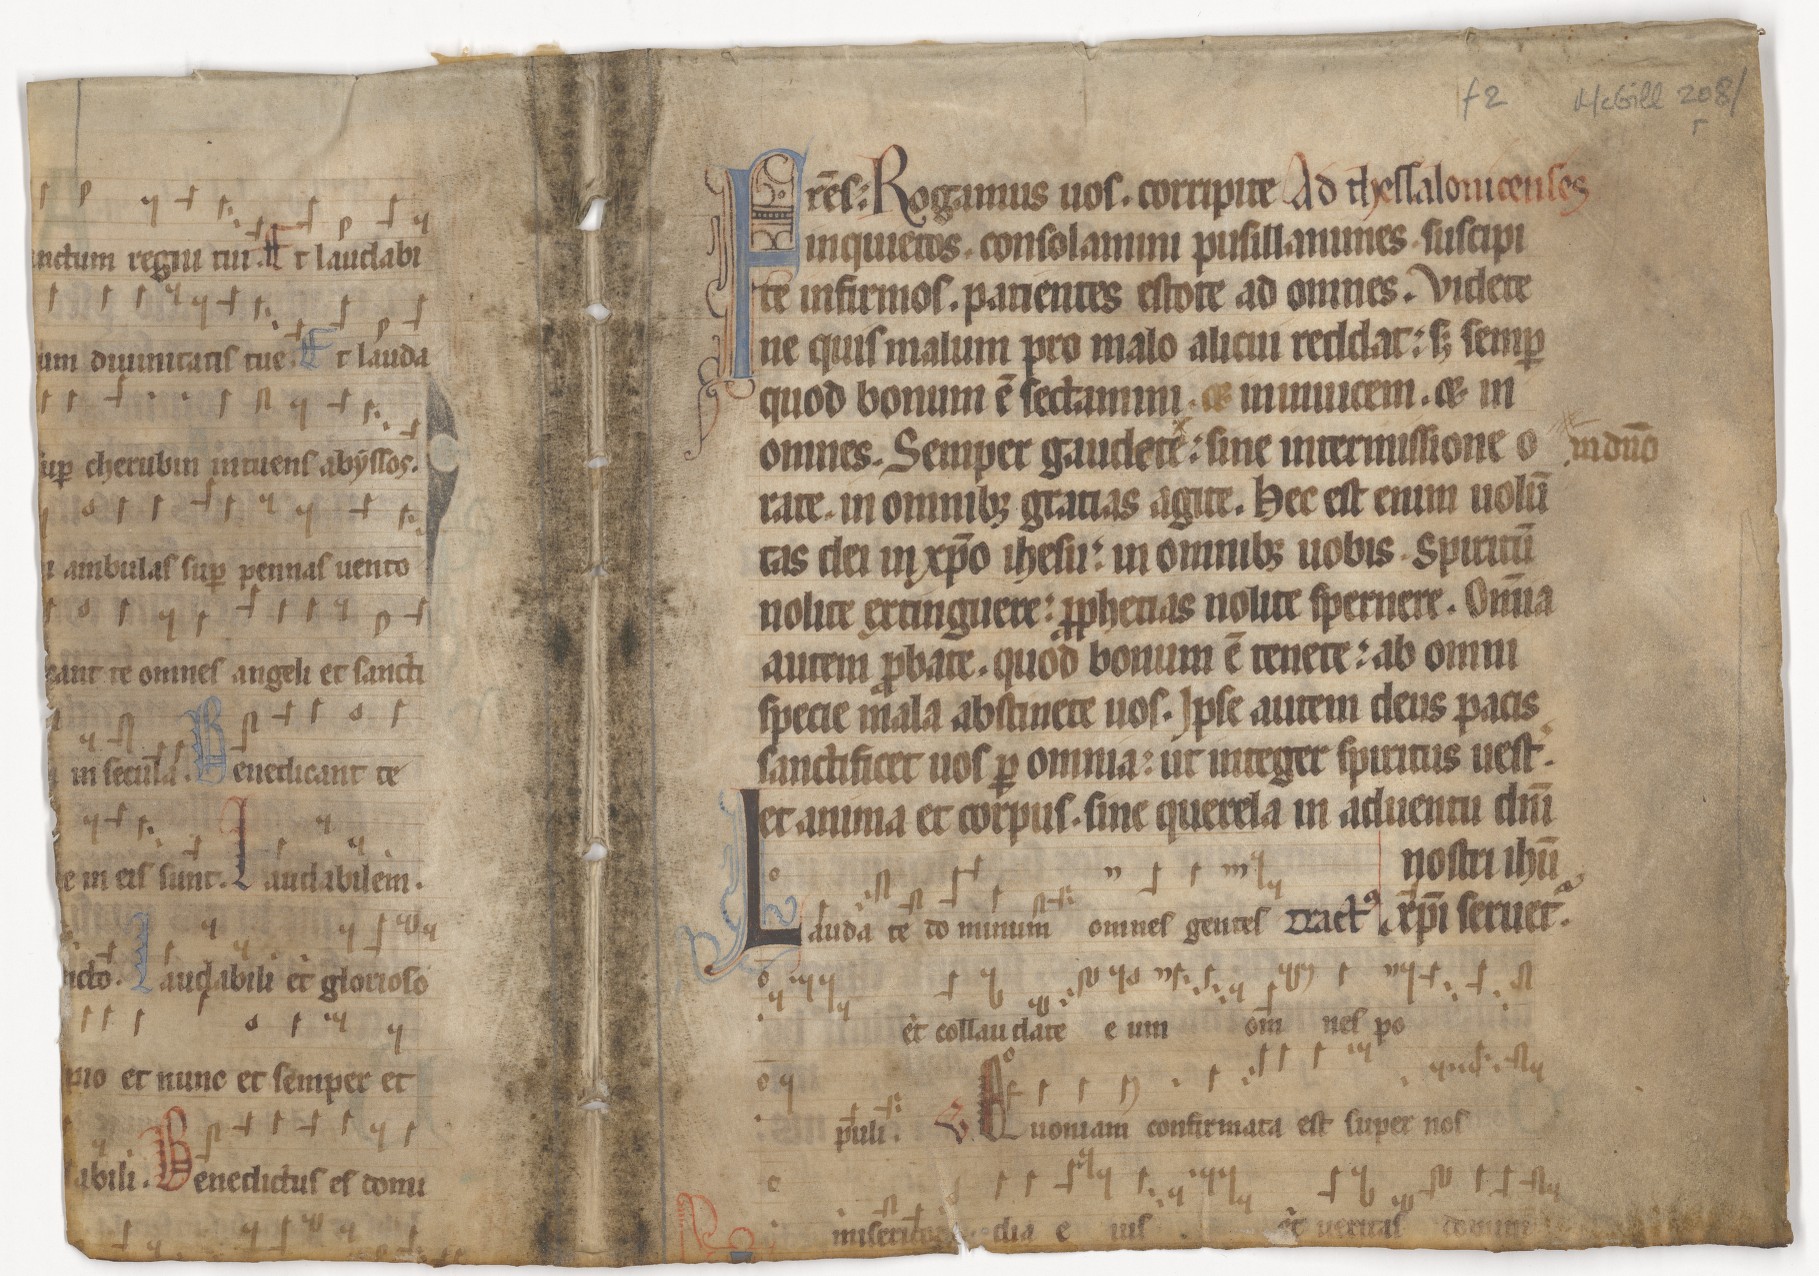 f2 McGill 208/
r
nctum regni tui. Et laudabi
um diuinitatis tue. Et lauda
sup cherubin intuens abyssos.
ambulas sup pennas uento
cant te omnes angeli et sancti
in secula. Benedicant te
e in eis sunt. Laudabilem.
ncto. Laudabili et glorioso
pio et nunc et semper et
abili. Benedictus es domi
Frēs: Rogamus uos. corripite Ad thessalonicenses
inquietos. consolamini pusillanimes. suscipi
te infirmos. patientes estote ad omnes. Videte
ne quis malum pro malo alicui reddat: sꝫ semꝑ
quod bonum ē sectamini. et in inuicem. et in
omnes. Semper gaudete: sine intermissione o in dn̄o
rate. in omnibꝫ gratias agite. Hec est enim uolū
tas dei in xp̄o ihesu: in omnibꝫ uobis. Spiritū
nolite extinguere: ꝓphetias nolite spernere. Om̄ia
autem ꝓbate. quod bonum ē tenete: ab omni
specie mala abstinete uos. Ipse autem deus pacis
sanctificet uos ꝑ omnia: ut integer spiritus uest.
et anima et corpus. sine querela in aduentu dn̄i
nostri ihū
Laudate dominum omnes gentes tractꝰ xp̄i seruet᷑.
et collaudate eum om̄nes po
puli. Quoniam confirmata est super nos
misericordia eius et ueritas domini